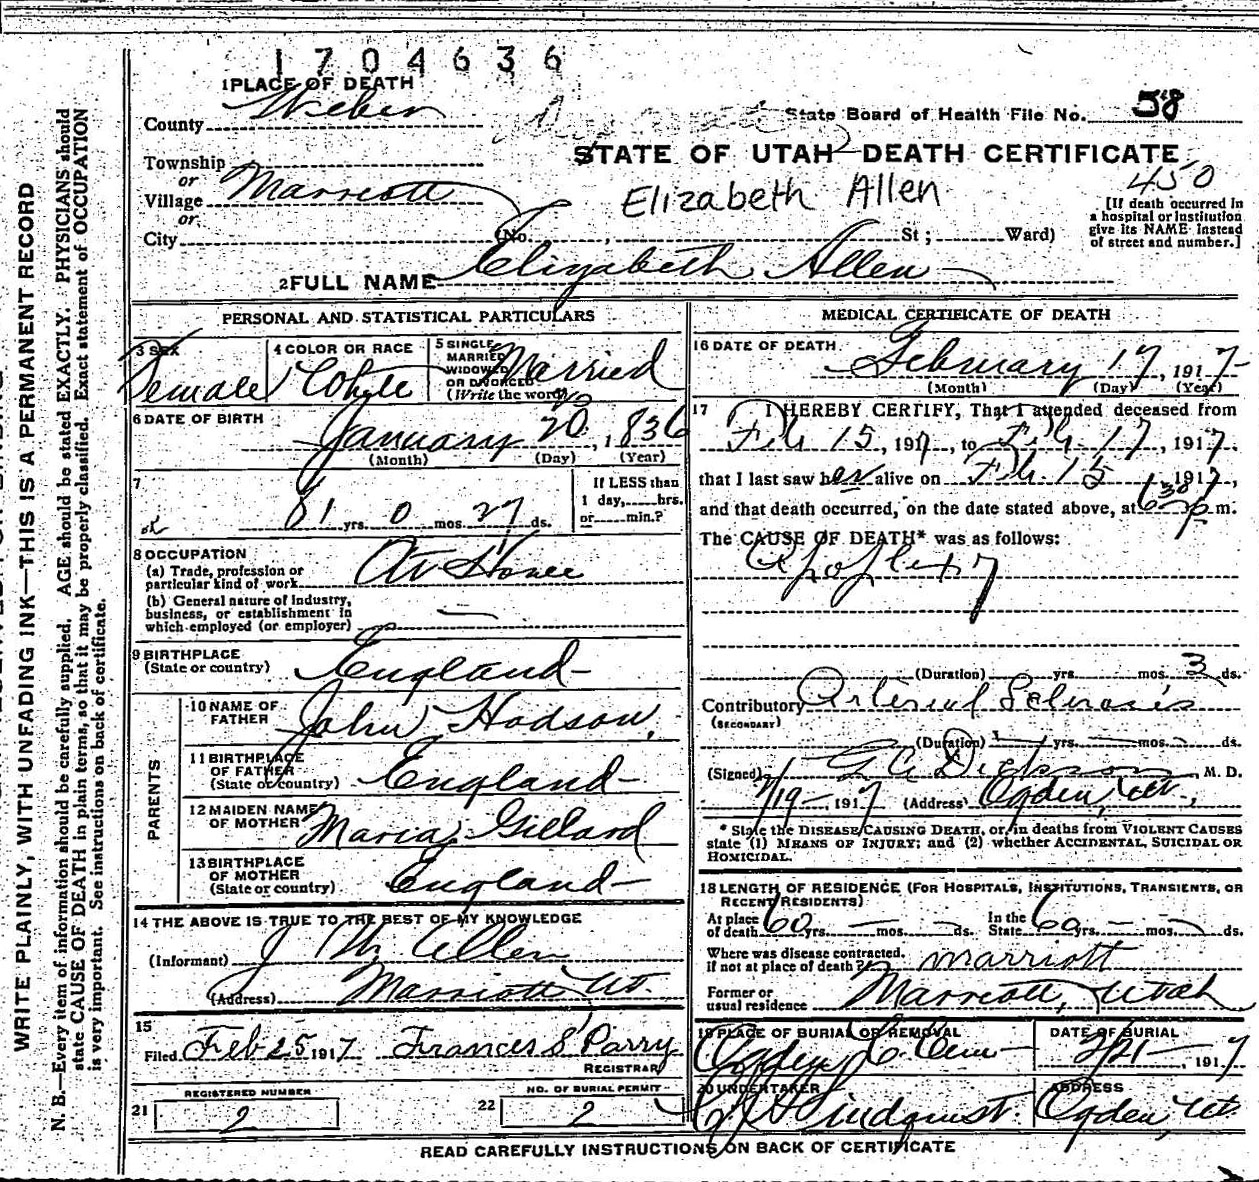 1704636
1 PLACE OF DEATH
County Weber
State Board of Health File No. 58
STATE OF UTAH—DEATH CERTIFICATE
Township
or
Village Marriott
or
City (No. , St ; Ward)
Elizabeth Allen
450
[If death occurred in
a hospital or institution
give its NAME instead
of street and number.]
2 FULL NAME Elizabeth Allen
PERSONAL AND STATISTICAL PARTICULARS
3 SEX
Female
4 COLOR OR RACE
White
5 SINGLE
MARRIED
WIDOWED
OR DIVORCED
(Write the word)
Married
6 DATE OF BIRTH
January 20, 1836
(Month) (Day) (Year)
7
81 yrs. 0 mos. 27 ds.
If LESS than
1 day, hrs.
or min.?
8 OCCUPATION
(a) Trade, profession or
particular kind of work At Home
(b) General nature of Industry,
business, or establishment in
which employed (or employer) —
9 BIRTHPLACE
(State or country) England
PARENTS
10 NAME OF
FATHER John Hodson
11 BIRTHPLACE
OF FATHER
(State or country) England
12 MAIDEN NAME
OF MOTHER Maria Gillard
13 BIRTHPLACE
OF MOTHER
(State or country) England
14 THE ABOVE IS TRUE TO THE BEST OF MY KNOWLEDGE
(Informant) J W Allen
(Address) Marriott Ut.
15
Filed Feb 25 1917 Frances S Parry
REGISTRAR
REGISTERED NUMBER
21 2
NO. OF BURIAL PERMIT
22 2
MEDICAL CERTIFICATE OF DEATH
16 DATE OF DEATH
February 17, 1917
(Month) (Day) (Year)
17 I HEREBY CERTIFY, That I attended deceased from
Feb 15, 1917, to Feb. 17, 1917,
that I last saw her alive on Feb. 15 1917,
and that death occurred, on the date stated above, at 6 30 p m.
The CAUSE OF DEATH* was as follows:
Apoplexy
(Duration) yrs. mos. 3 ds.
Contributory Arterial Sclerosis
(SECONDARY)
(Duration) yrs. mos. ds.
(Signed) G A Dickson, M. D.
2/19— 1917 (Address) Ogden, Ut.,
* State the DISEASE CAUSING DEATH, or, in deaths from VIOLENT CAUSES
state (1) MEANS OF INJURY; and (2) whether ACCIDENTAL, SUICIDAL OR
HOMICIDAL.
18 LENGTH OF RESIDENCE (FOR HOSPITALS, INSTITUTIONS, TRANSIENTS, OR
RECENT RESIDENTS)
At place
of death 60 yrs. — mos. — ds.
In the
State 60 yrs. — mos. — ds.
Where was disease contracted.
if not at place of death? Marriott
Former or
usual residence Marriott, Utah
19 PLACE OF BURIAL OR REMOVAL
Ogden C. Cem—
DATE OF BURIAL
2/21—, 1917
20 UNDERTAKER
Lindquist.
ADDRESS
Ogden, Ut.
READ CAREFULLY INSTRUCTIONS ON BACK OF CERTIFICATE
WRITE PLAINLY, WITH UNFADING INK—THIS IS A PERMANENT RECORD
N. B.—Every item of information should be carefully supplied. AGE should be stated EXACTLY. PHYSICIANS should
state CAUSE OF DEATH in plain terms, so that it may be properly classified. Exact statement of OCCUPATION
is very important. See instructions on back of certificate.